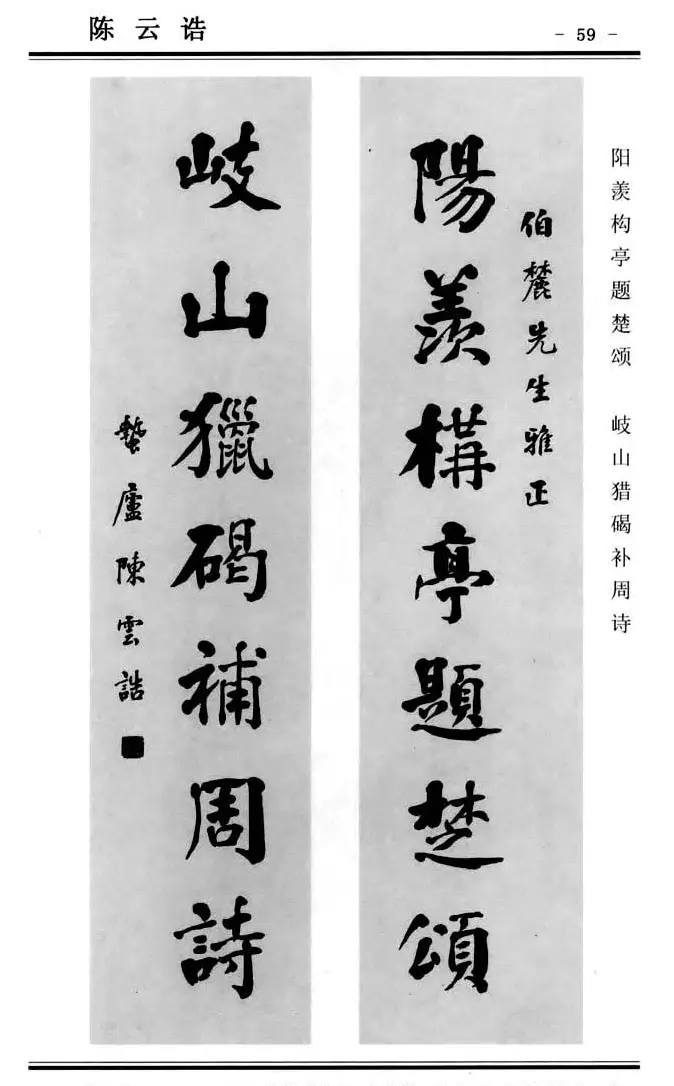 陈云诰
- 59 -
阳羡构亭题楚颂 岐山猎碣补周诗
伯麓先生雅正
陽羨構亭題楚頌
岐山獵碣補周詩
蟄廬陳雲誥